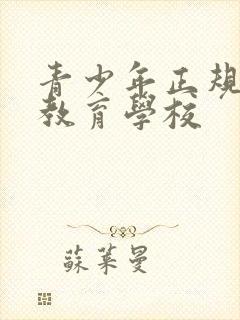 青少年正規
教育學校
蘇萊曼